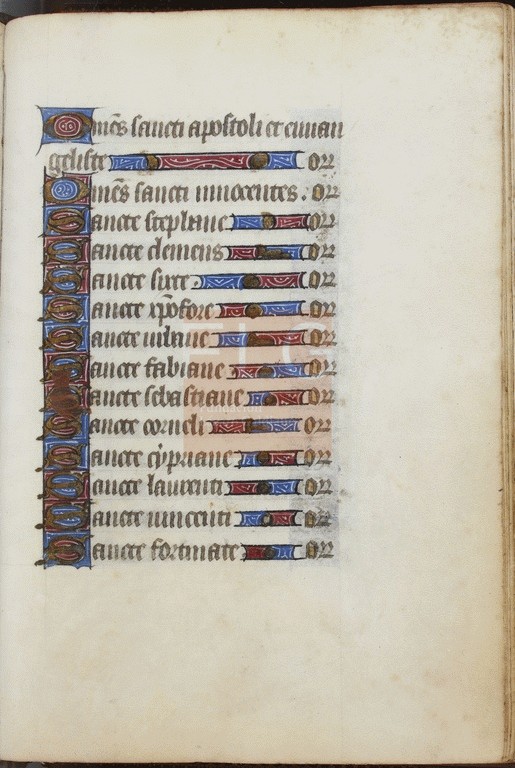 Om̅es sancti apostoli et euuan
geliste Or̅
Om̅es sancti innocentes. Or̅
Sancte stephane Or̅
Sancte clemens Or̅
Sancte sixte. Or̅
Sancte xp̅ofore Or̅
Sancte iuliane Or̅
Sancte fabiane Or̅
Sancte sebastiane Or̅
Sancte corneli Or̅
Sancte cypriane Or̅
Sancte laurenti Or̅
Sancte uincenti Or̅
Sancte fortunate Or̅
FLG
Fundación